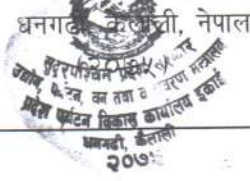 धनगढी, कैलाली, नेपाल
सुदूरपश्चिम प्रदेश सरकार
उद्योग, पर्यटन, वन तथा वातावरण मन्त्रालय
प्रदेश पर्यटन विकास कार्यालय इकाई
धनगढी, कैलाली